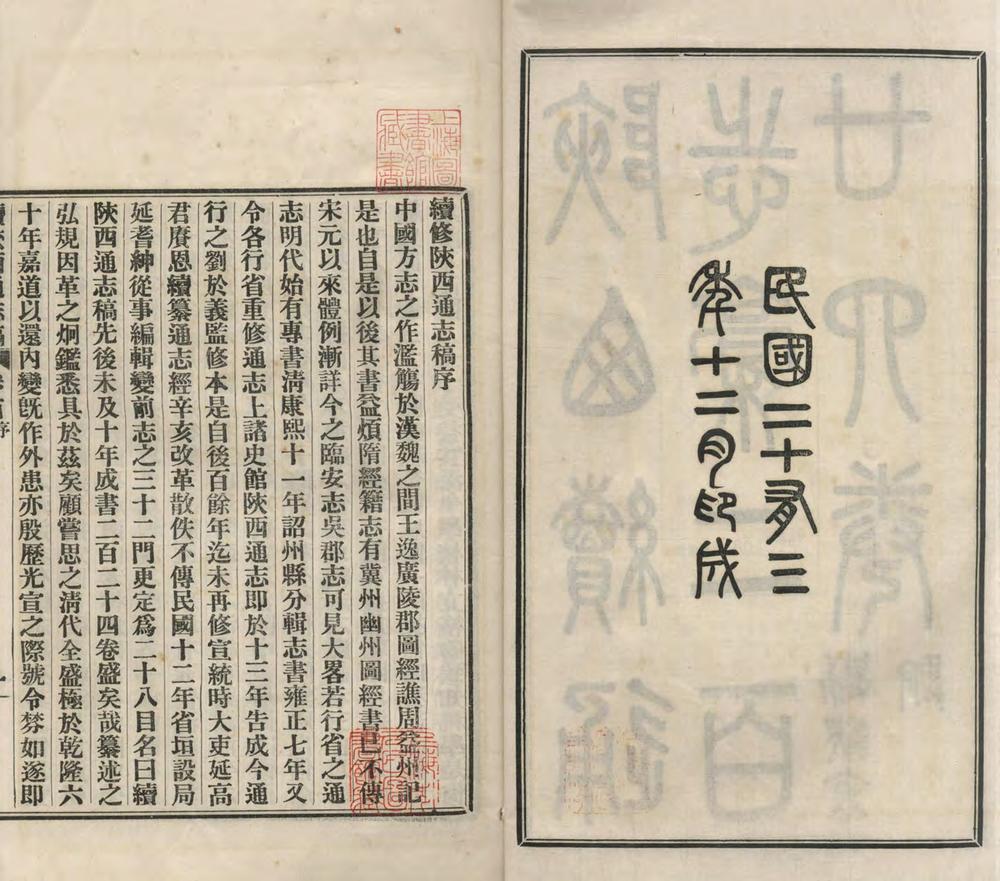 民國二十有三
年十二月印成
上海圖書館藏書
續修陝西通志稿序
中國方志之作濫觴於漢魏之間王逸廣陵郡圖經譙周益州記
是也自是以後其書益煩隋經籍志有冀州幽州圖經書已不傳
宋元以來體例漸詳今之臨安志吳郡志可見大畧若行省之通
志明代始有專書淸康熙十一年詔州縣分輯志書雍正七年又
令各行省重修通志上諸史館陝西通志即於十三年告成今通
行之劉於義監修本是自後百餘年迄未再修宣統時大吏延高
君賡恩續纂通志經辛亥改革散佚不傳民國十二年省垣設局
延耆紳從事編輯變前志之三十二門更定爲二十八目名曰續
陝西通志稿先後未及十年成書二百二十四卷盛矣哉纂述之
弘規因革之炯鑑悉具於茲矣顧嘗思之淸代全盛極於乾隆六
十年嘉道以還內變旣作外患亦殷歷光宣之際號令棼如遂即